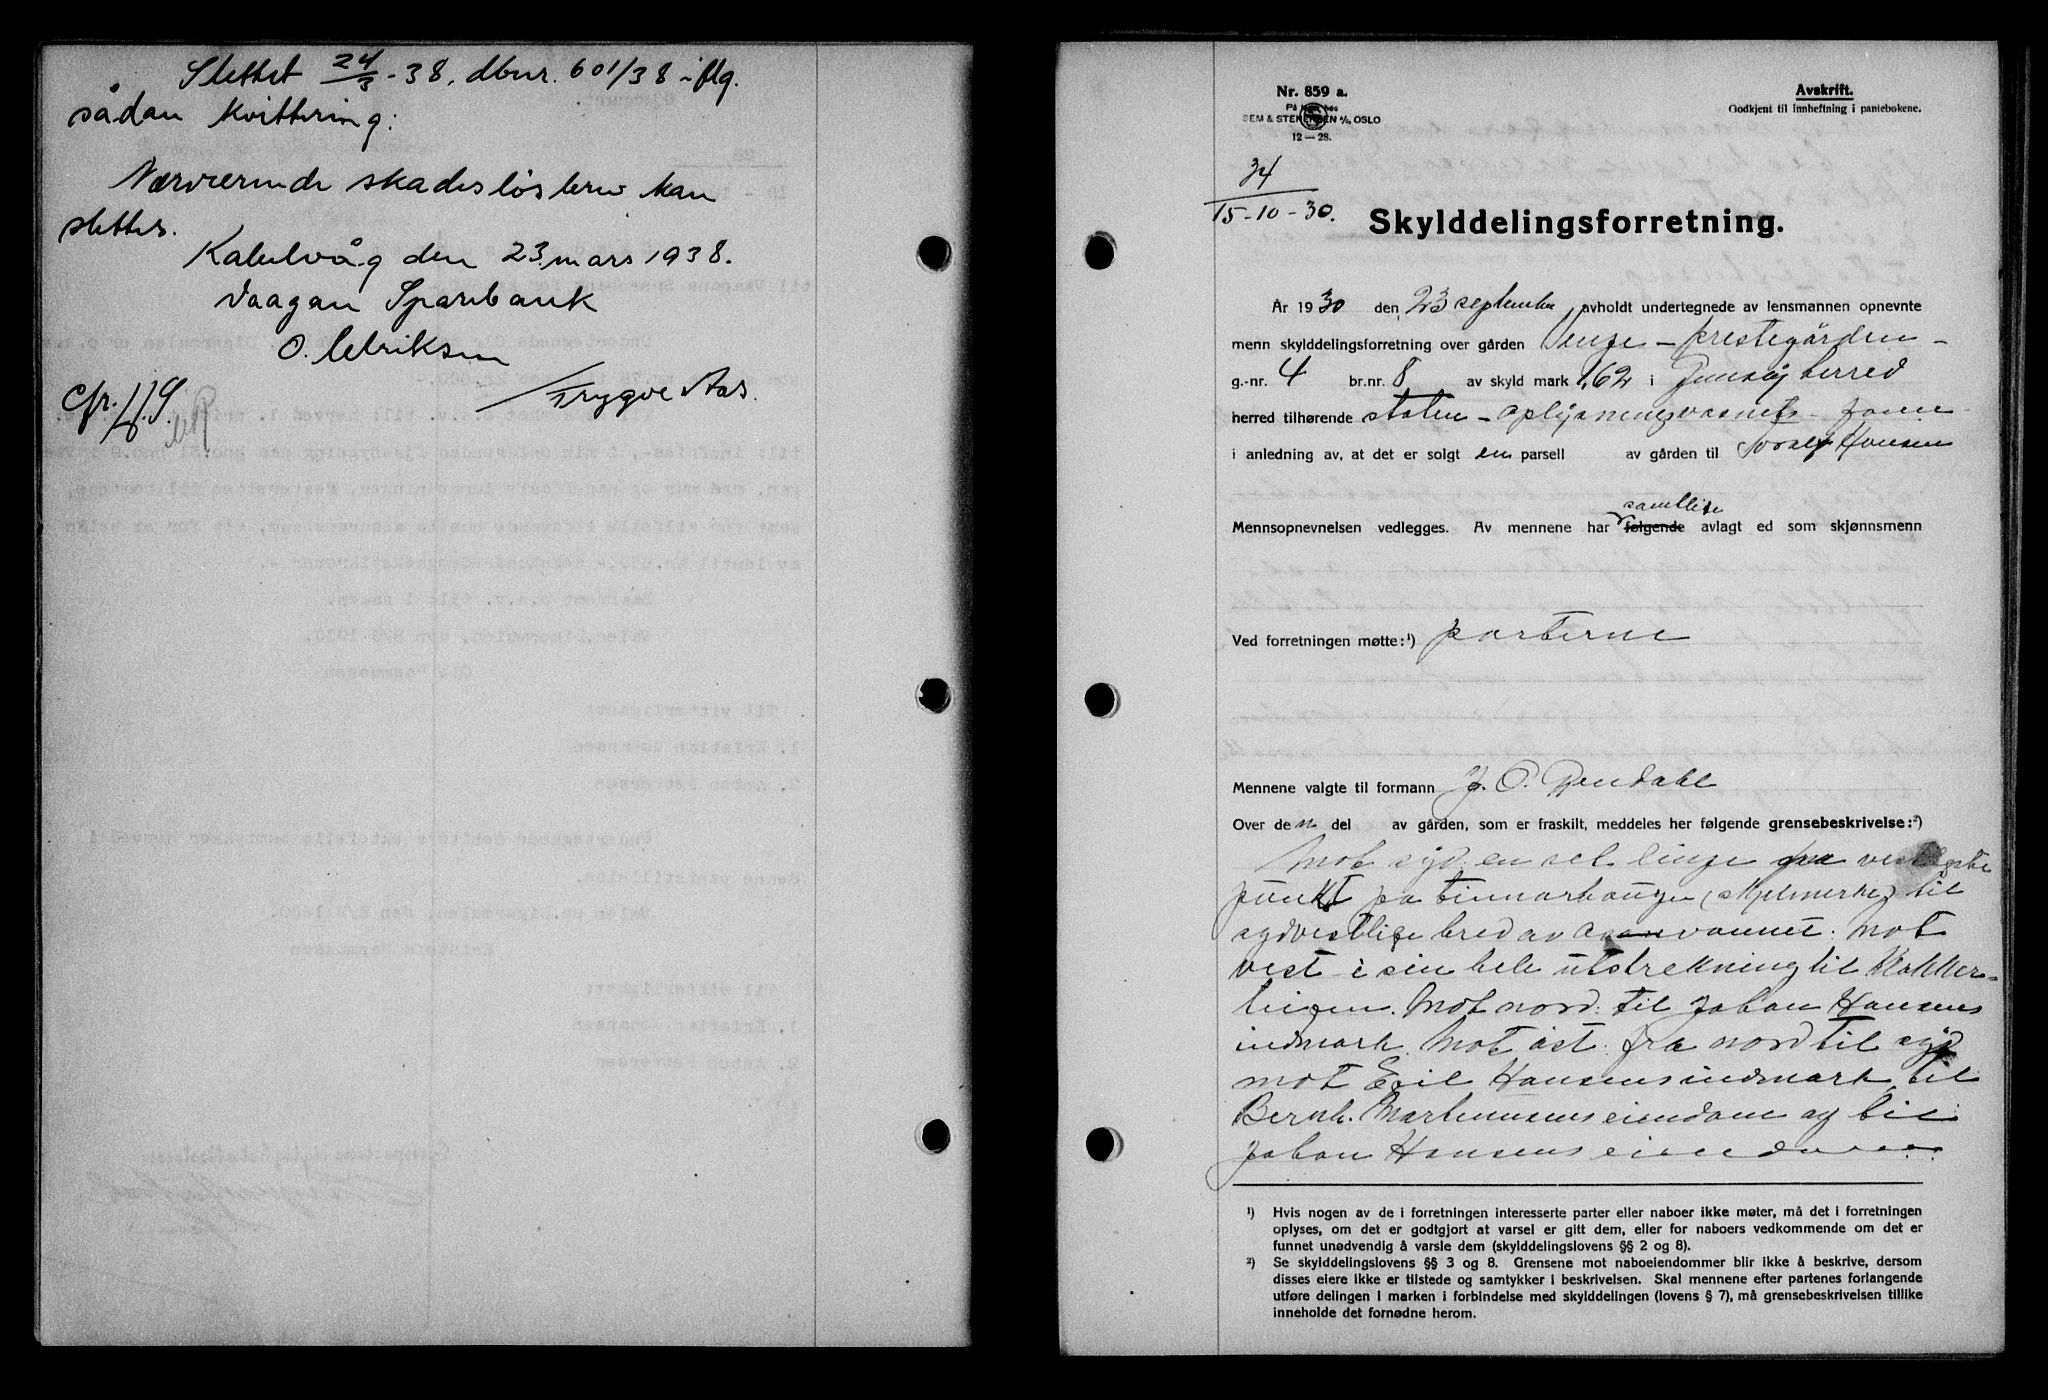 Slettet 24/3-38, dbnr. 601/38 iflg.
sådan kvittering:
Nærværende skadesløsbrev kan
slettes.
Kabelvåg den 23 mars 1938.
Vaagan Sparebank
O. Ulriksen
Trygve Aas.
cfr.
Nr. 859 a.
På lager hos
SEM & STENERSEN A/S, OSLO
12—28.
Avskrift.
Godkjent til innheftning i pantebøkene.
34
15-10-30.
Skylddelingsforretning.
År 1930 den 23 september, avholdt undertegnede av lensmannen opnevnte
menn skylddelingsforretning over gården Unge - prestegården -
g.-nr. 4 br.nr. 8 av skyld mark 1,62 i Gimsøy herred
herred tilhørende staten - oplysningsvæsnets fond
i anledning av, at det er solgt en parsell av gården til Toralf Hansen
samtlige
Mennsopnevnelsen vedlegges. Av mennene har følgende avlagt ed som skjønnsmenn
Ved forretningen møtte:¹) parterne
Mennene valgte til formann J. O. Rendahl
Over den del av gården, som er fraskilt, meddeles her følgende grensebeskrivelse:²)
Mot syd: en ret linje fra vestligste
punkt på tinnarhaugen (skjelmerke) til
sydvestlige bred av vannet. Mot
vest i sin hele utstrekning til Klokker-
Mot nord: til Johan Hansens
indmark. Mot øst: fra nord til syd
mot Egil Hansens indmark, til
Bernh. Martinussens eiendom og til
Johan Hansens eiendom.
¹) Hvis nogen av de i forretningen interesserte parter eller naboer ikke møter, må det i forretningen
oplyses, om det er godtgjort at varsel er gitt dem, eller for naboers vedkommende om det er
funnet unødvendig å varsle dem (skylddelingslovens §§ 2 og 8).
²) Se skylddelingslovens §§ 3 og 8. Grensene mot naboeiendommer blir ikke å beskrive, dersom
disses eiere ikke er tilstede og samtykker i beskrivelsen. Skal mennene efter partenes forlangende
utføre delingen i marken i forbindelse med skylddelingen (lovens § 7), må grensebeskrivelsen tillike
inneholde det fornødne herom.